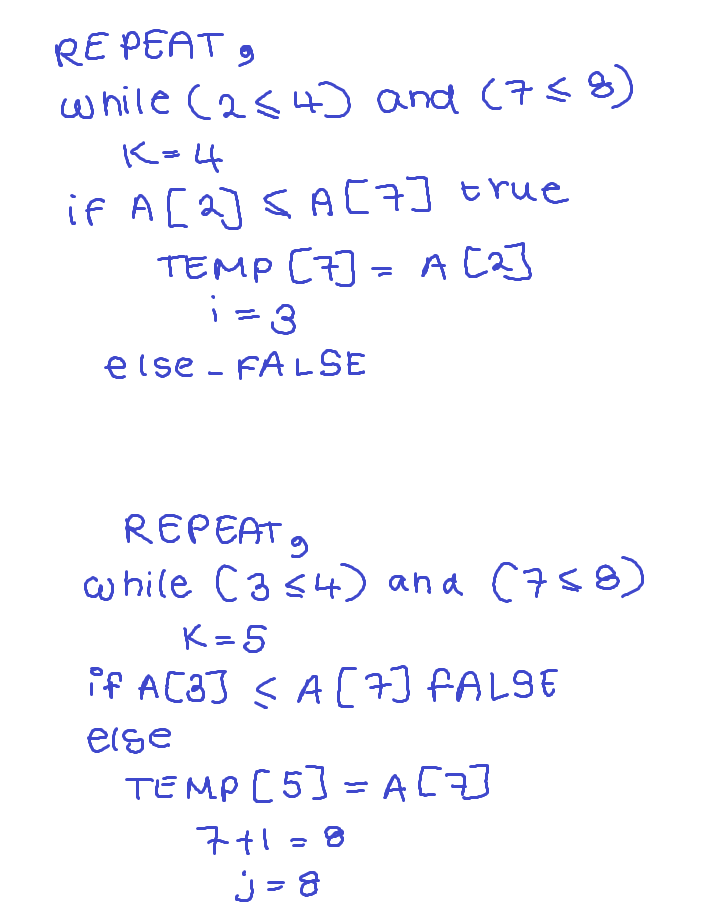 REPEAT,
while (2 ≤ 4) and (7 ≤ 8)
K = 4
if A[2] ≤ A[7] true
TEMP [7] = A [2]
i = 3
else - FALSE
REPEAT,
while (3 ≤ 4) and (7 ≤ 8)
K = 5
if A[3] ≤ A[7] fALSE
else
TEMP [5] = A[7]
7+1 = 8
j = 8